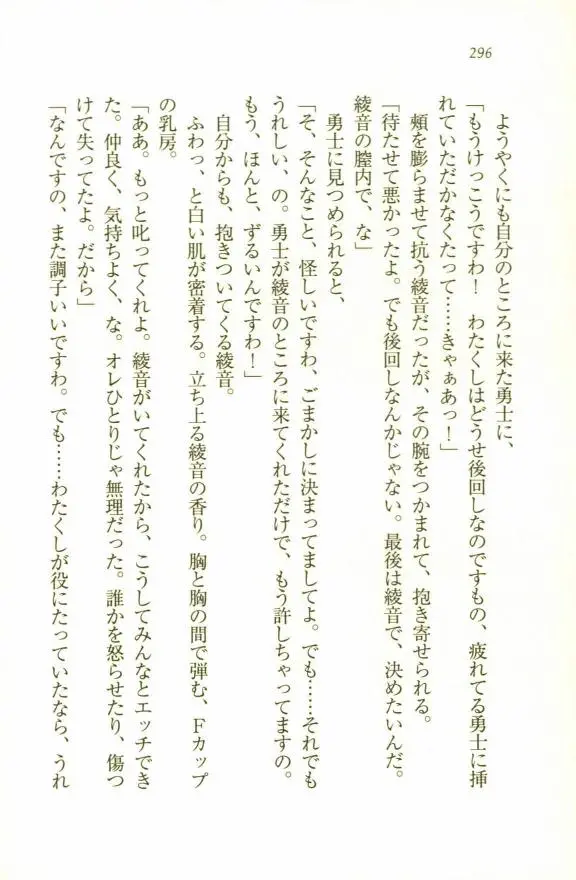 296
ようやくにも自分のところに来た勇士に、
「もうけっこうですわ！　わたくしはどうせ後回しなのですもの、疲れてる勇士に挿
れていただかなくたって……きゃぁあっ！」
頬を膨らませて抗う綾音だったが、その腕をつかまれて、抱き寄せられる。
「待たせて悪かったよ。でも後回しなんかじゃない。最後は綾音で、決めたいんだ。
綾音の膣内で、な」
勇士に見つめられると、
「そ、そんなこと、怪しいですわ、ごまかしに決まってましてよ。でも……それでも
うれしい、の。勇士が綾音のところに来てくれただけで、もう許しちゃってますの。
もう、ほんと、ずるいんですわ！」
自分からも、抱きついてくる綾音。
ふわっ、と白い肌が密着する。立ち上る綾音の香り。胸と胸の間で弾む、Fカップ
の乳房。
「ああ。もっと叱ってくれよ。綾音がいてくれたから、こうしてみんなとエッチでき
た。仲良く、気持ちよく、な。オレひとりじゃ無理だった。誰かを怒らせたり、傷つ
けて失ってたよ。だから」
「なんですの、また調子いいですわ。でも……わたくしが役にたっていたなら、うれ